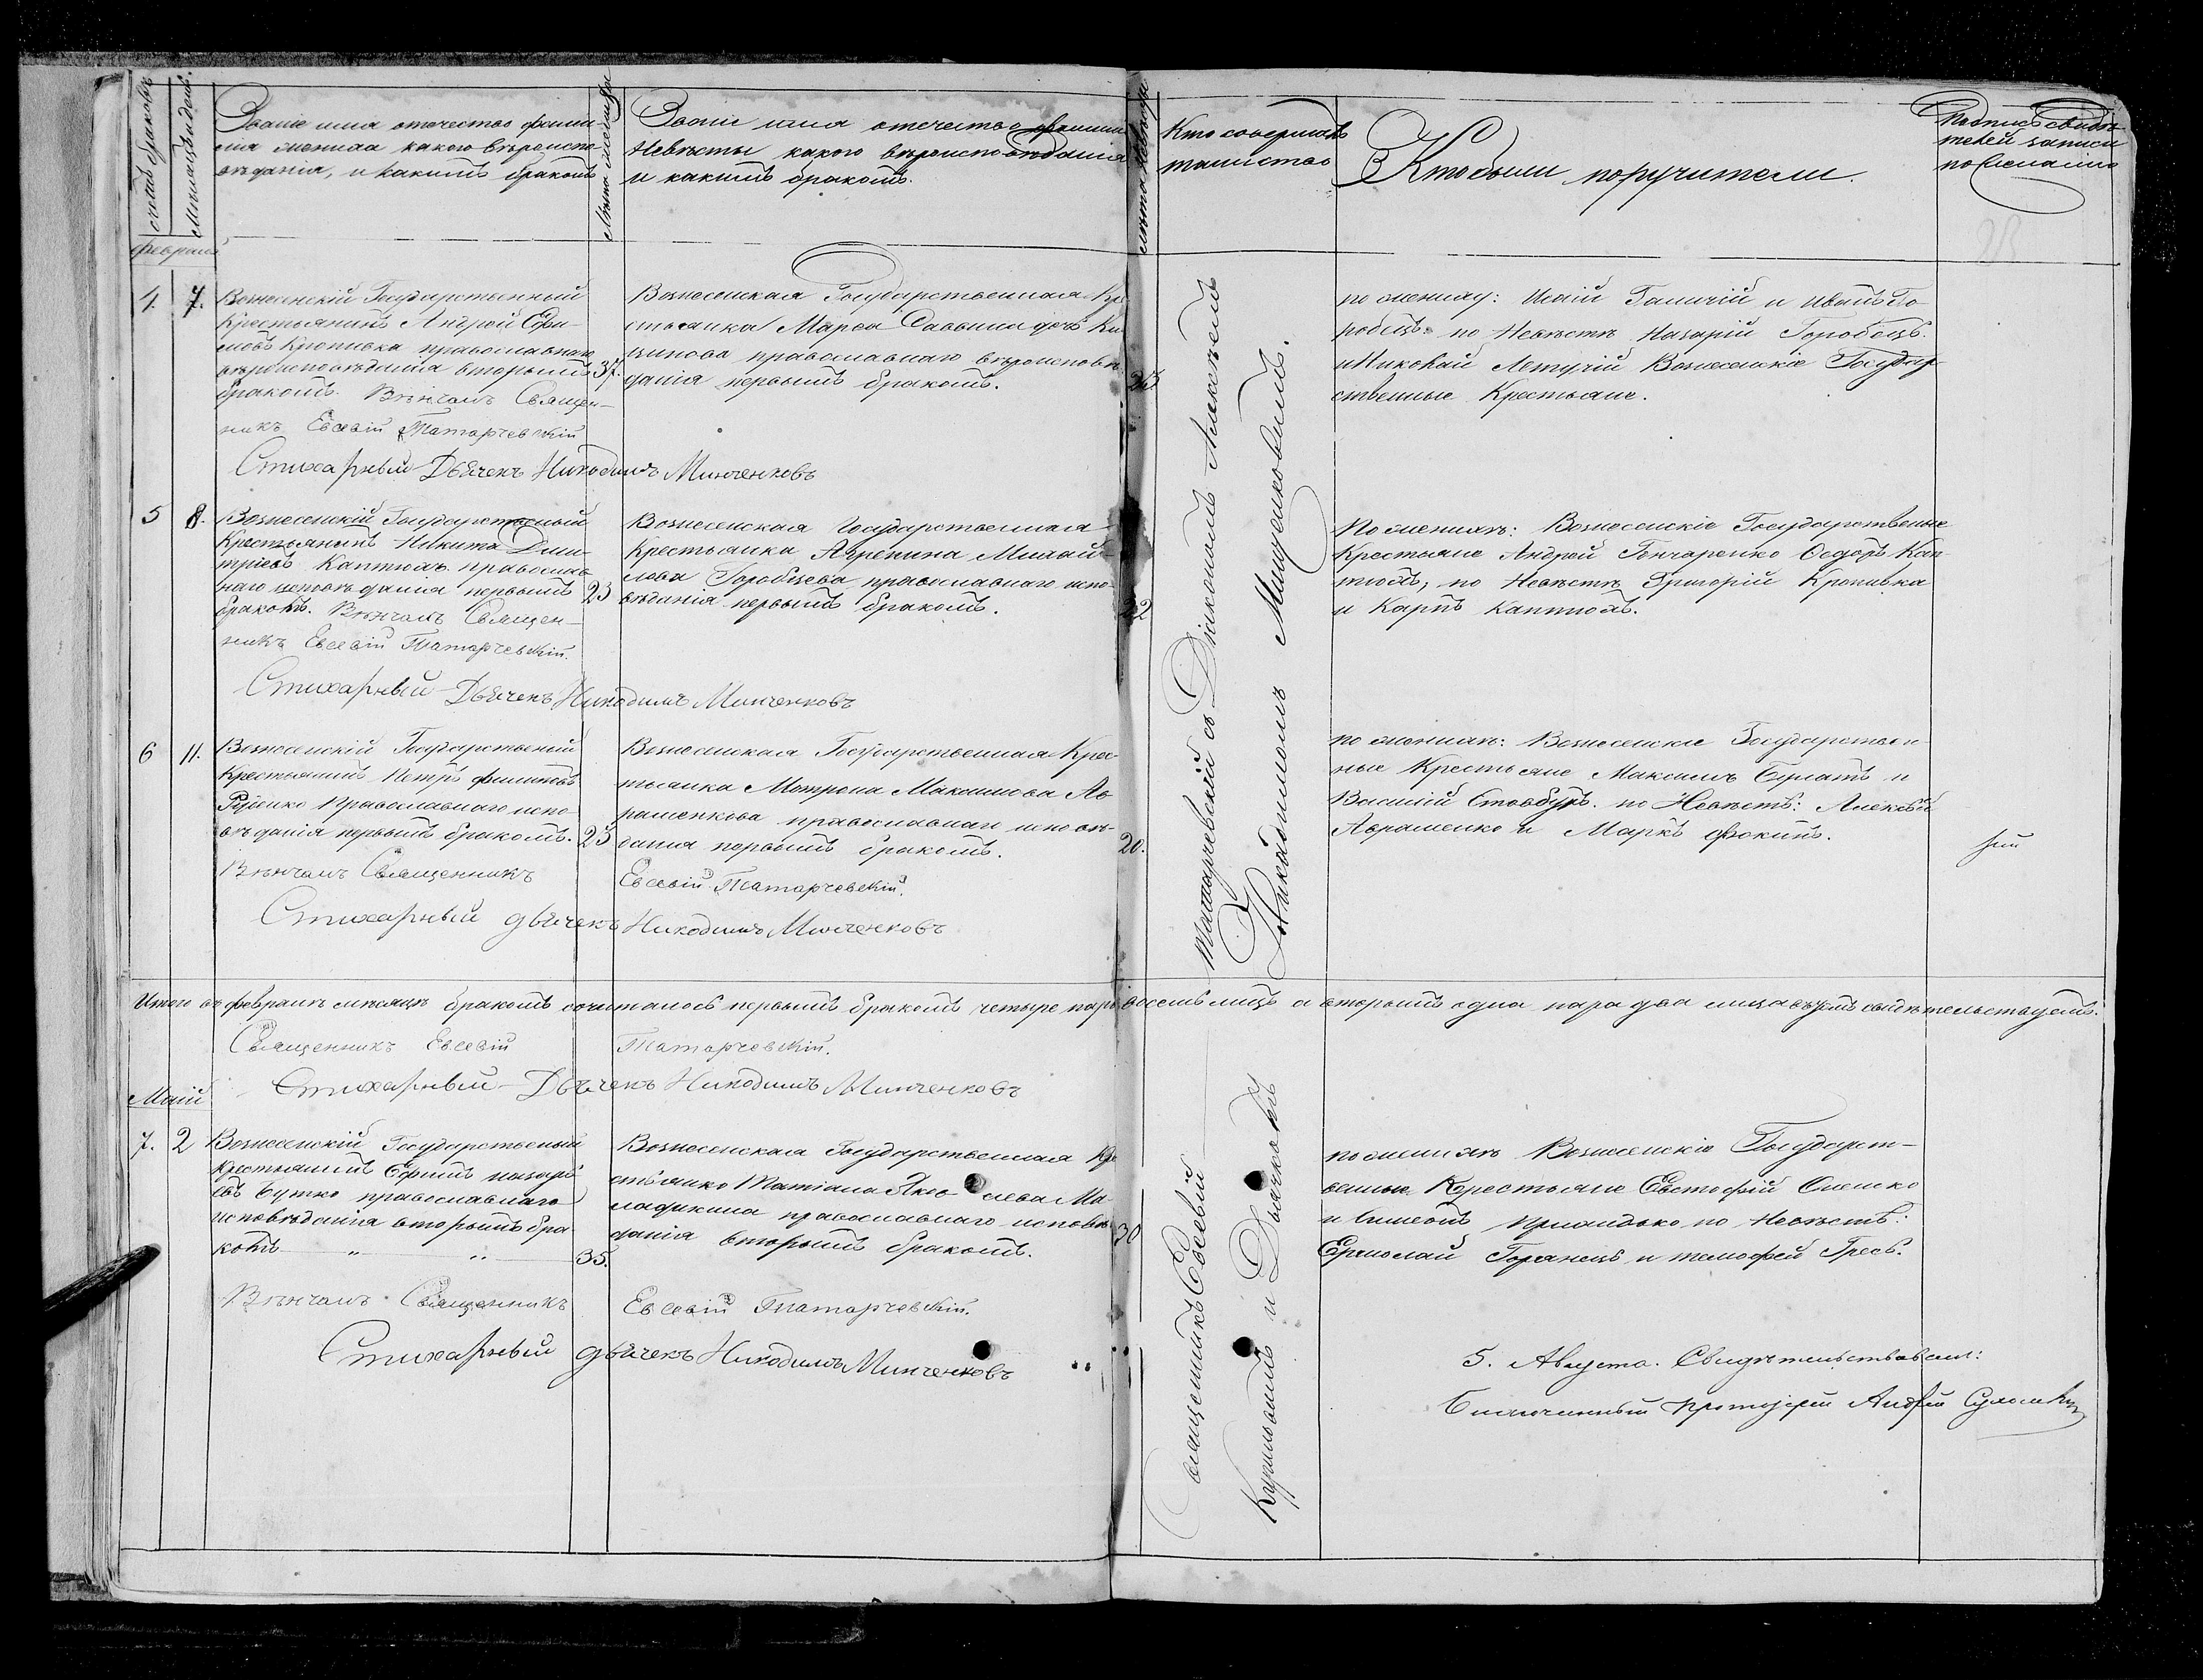 Счетъ браковъ
Месяцъ и день.
Званіе имя отечество фами
лія жениха какого вѣроиспо
вѣданія, и какимъ бракомъ
Лѣта жениха
Званіе имя отечество фамилія
Невѣсты какого вѣроисповѣданія
и какимъ бракомъ.
Лѣта невѣсты
Кто совершалъ
таинство
Кто были поручители.
Подпись свидѣ
телей записи
по желанію
февраль
4. 7.
Вознесенскій Государственный
Крестьянинъ Андрей Ефи-
мовъ Кропивка православнаго
вѣроисповѣданія вторымъ 37.
бракомъ. Вѣнчалъ Священ-
никъ Евсевій Татарчевскій
Стихарный Дьячекъ Никодимъ Минченковъ
Вознесенская Государственная Кре
стьянка Марѳа Саввина дочь
православнаго вѣроисповѣ
данія первымъ бракомъ.
по жениху: Исаій Галичій и Иванъ Го
робецъ по Невѣстѣ Назарій Горобецъ.
и Николай Летучій Вознесенскіе Государ
ственные Крестьяне.
5 8.
Вознесенскій Государственый
Крестьянинъ Никита Дми-
тріевъ Каптюхъ православ
наго исповѣданія первымъ 23
бракомъ. Вѣнчалъ Священ-
никъ Евсевій Татарчевскій.
Стихарный Дьячекъ Никодимъ Минченковъ
Вознесенская Государственная
Крестьянка Агрепина Михай-
лова Горобцева православнаго испо-
вѣданія первымъ бракомъ. 22
По женихѣ: Вознесенскіе Государственые
Крестьяне Андрей Гончаренко Ѳедоръ Кап
тюхъ, по Невѣстѣ Григорій Кропивка
и Карпъ Каптюхъ.
6 11.
Вознесенскій Государственый
Крестьянинъ Петръ Филиповъ
Руденко Православнаго испо
вѣданія первымъ бракомъ. 23
Вѣнчалъ Священникъ
Стихарный дьячекъ Никодимъ Минченковъ
Вознесенская Государственная Крес
тьянка Матрона Максимова Ав
раменкова православнаго исповѣ-
данія первымъ бракомъ. 20.
Евсевій Татарчевскій.
по женихѣ: Вознесенскіе Государствен
ные Крестьяне Максимъ и
Василій Стовбуръ. по Невѣстѣ: Алексѣй
Авраменко и Маркъ Фокинъ.
Итого въ февралѣ месяцѣ бракомъ сочиталось первымъ бракомъ четыре пары восемь лицъ а вторымъ одна пара два лица въ чемъ свидѣтельствуемъ.
Священникъ Евсевій Татарчевскій.
Стихарный Дьячекъ Никодимъ Минченковъ
Маій
7. 2
Вознесенскій Государственый
Крестьянинъ Ефимъ Назарі
евъ Бутко православнаго
исповѣданія вторымъ бра
комъ " " 35.
Вѣнчалъ Священникъ
Стихарный дьячекъ Никодимъ Минченковъ
Вознесенская Государственная Кре
стьянка Татіана Яковлева Ма-
православнаго исповѣ
данія вторымъ бракомъ. 30
Евсевій Татарчевскій.
по женихѣ Вознесенскіе Государст-
венные Крестьяне Евстафій
и по Невѣстѣ:
Ермолай и Тимофей Гресь.
Священникъ Евсевій Татарчевскій съ Діакономъ Алексѣемъ
и Дьячкомъ Никодимомъ Минченковымъ.
5. Августа. Свидѣтельствовалъ:
Благочинный протоіерей Андрей